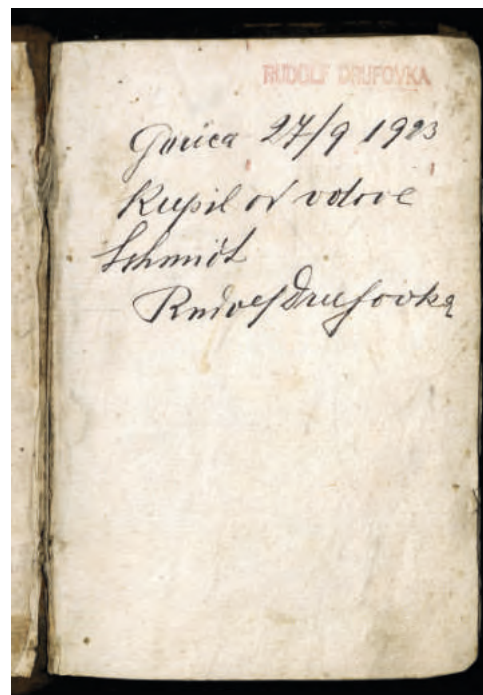 RUDOLF DRUFOVKA
Gorica 27/9 1923
Kupil od vdove
Schmidt
Rudolf Drufovka